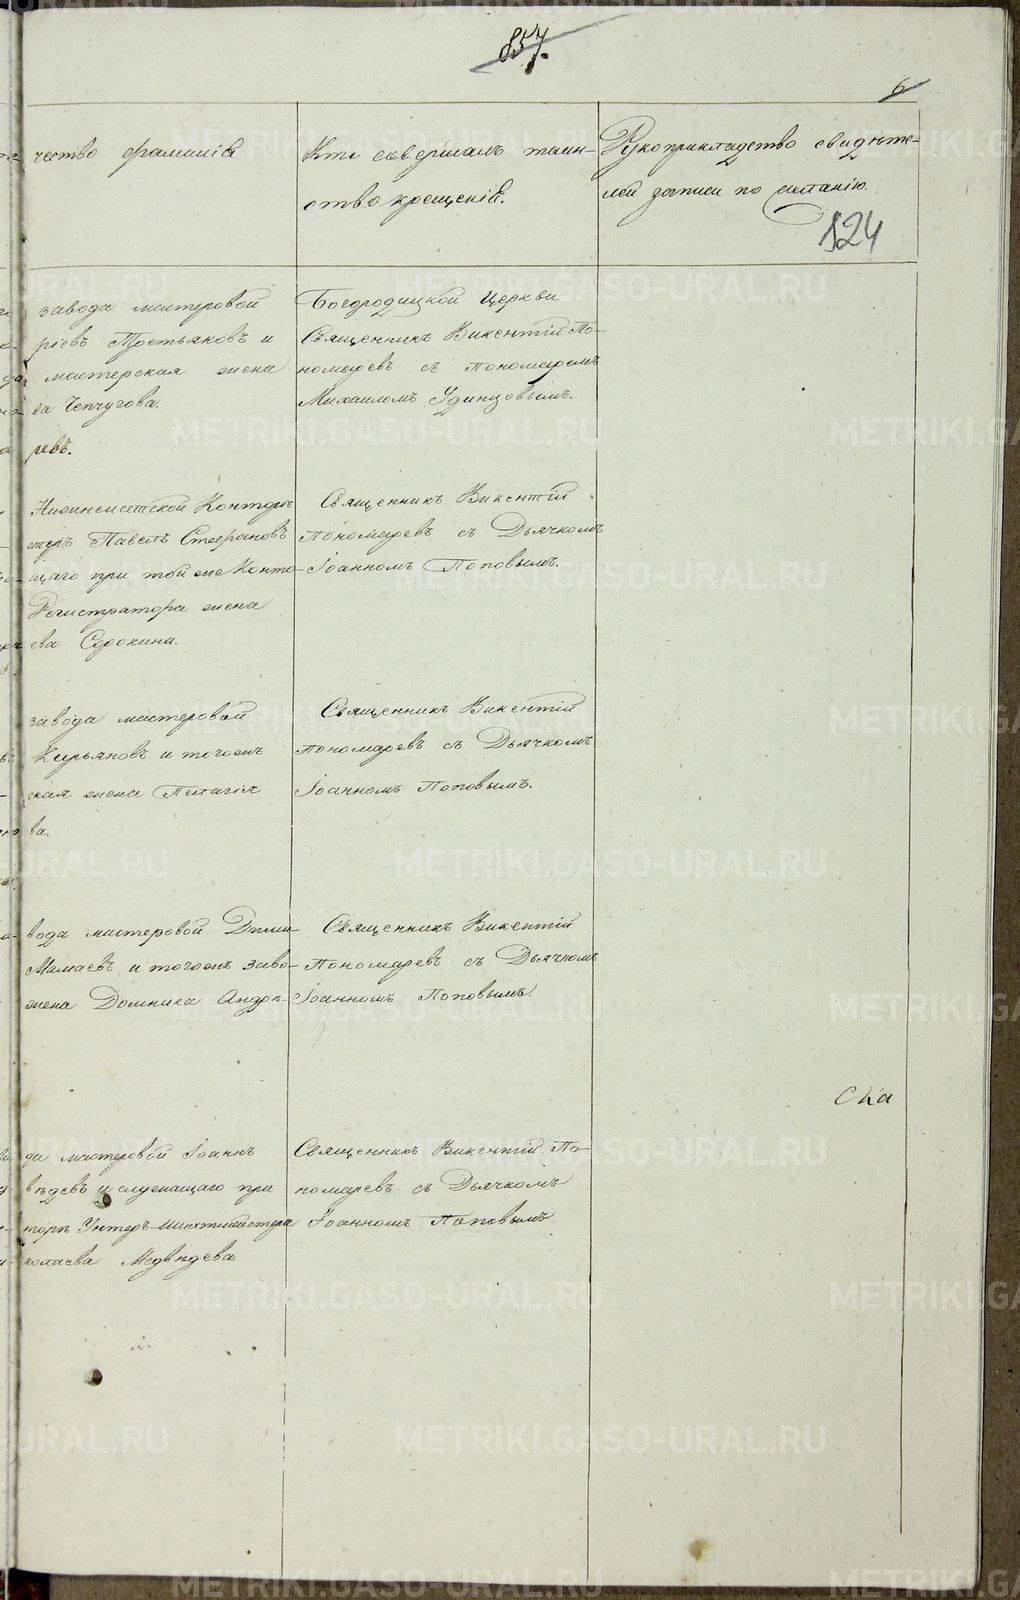 857.
6
чество фамилія
Кто совершалъ таин-
ство крещенія.
Рукоприкладство свидѣте-
лей записи по желанію
124
завода мастеровой
ріевъ Третьяковъ и
мастерская жена
ва Чепчугова.
ревъ.
Богородицкой Церкви
Священникъ Викентій По-
номаревъ съ пономаремъ
Михаиломъ Удинцовымъ.
Нижнеисетской Конторы
Павелъ Стефановъ
щаго при той же Конто-
Регистратора жена
ева Сорокина.
Священникъ Викентій
Пономаревъ съ Дьячкомъ
Іоанномъ Поповымъ.
завода мастеровой
Кирьяновъ и тогожъ
ская жена Пелагія
ва.
Священникъ Викентій
Пономаревъ съ Дьячкомъ
Іоанномъ Поповымъ.
вода мастеровой Дими
Мамаевъ и тогожъ заво-
жена Домника Андре-
Священникъ Викентій
Пономаревъ съ Дьячкомъ
Іоанномъ Поповымъ.
да мастеровой Іоаннъ
вѣдевъ и служащаго при
торѣ Унтеръ-шихтмейстера
колаева Медвѣдева
Священникъ Викентій По-
номаревъ съ Дьячкомъ
Іоанномъ Поповымъ
METRIKI.GASO-URAL.RU